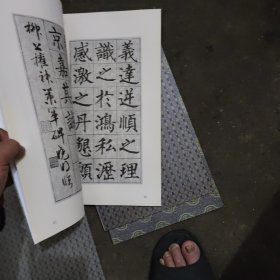 義達逆順之理
識之於鴻私瀝
感激之丹懇願
京嘉其
柳公權神策軍碑